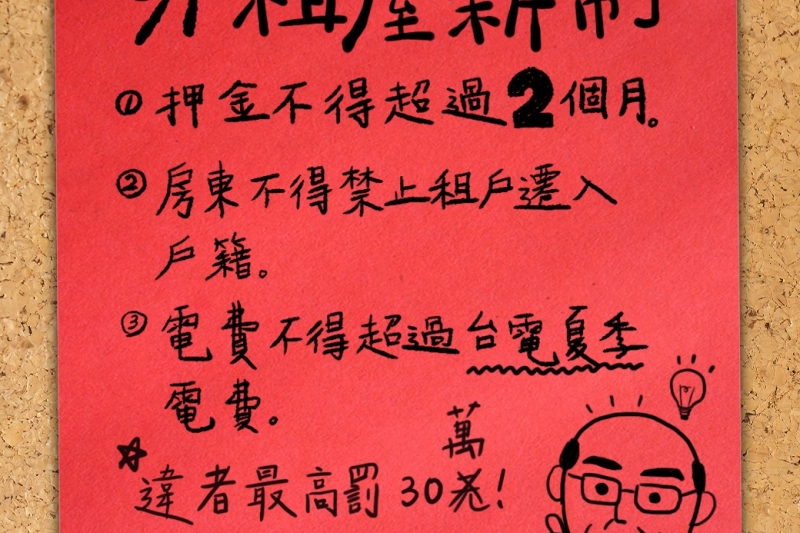 租屋新制
① 押金不得超過2個月。
② 房東不得禁止租戶遷入
戶籍。
③ 電費不得超過台電夏季
電費。
萬
☆違者最高罰30!